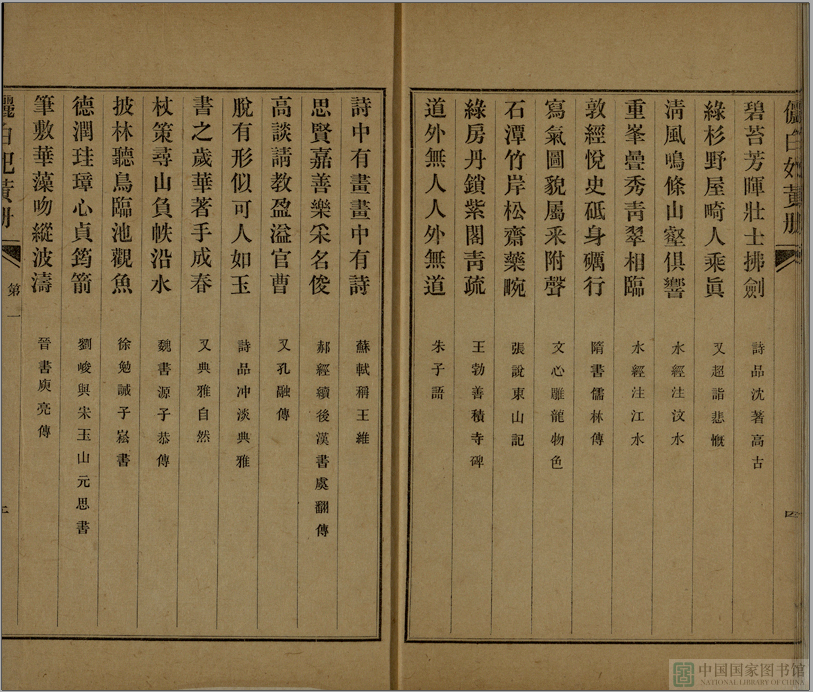 儷白妃黃冊
四
碧苔芳暉壯士拂劍 詩品沈著高古
綠杉野屋畸人乘眞 又超詣悲慨
清風鳴條山壑俱響 水經注汶水
重峯疊秀靑翠相臨 水經注江水
敦經悅史砥身礪行 隋書儒林傳
寫氣圖貌屬采附聲 文心雕龍物色
石潭竹岸松齋藥畹 張說東山記
綠房丹鎖紫閣靑疏 王勃善積寺碑
道外無人人外無道 朱子語
詩中有畫畫中有詩 蘇軾稱王維
思賢嘉善樂采名俊 郝經續後漢書虞翻傳
高談請教盈溢官曹 又孔融傳
脫有形似可人如玉 詩品冲淡典雅
書之歲華著手成春 又典雅自然
杖策尋山負帙沿水 魏書源子恭傳
披林聽鳥臨池觀魚 徐勉誡子崧書
德潤珪璋心貞筠箭 劉峻與宋玉山元思書
筆敷華藻吻縱波濤 晉書庾亮傳
儷白妃黃冊
第一
中国国家图书馆
NATIONAL LIBRARY OF CHINA